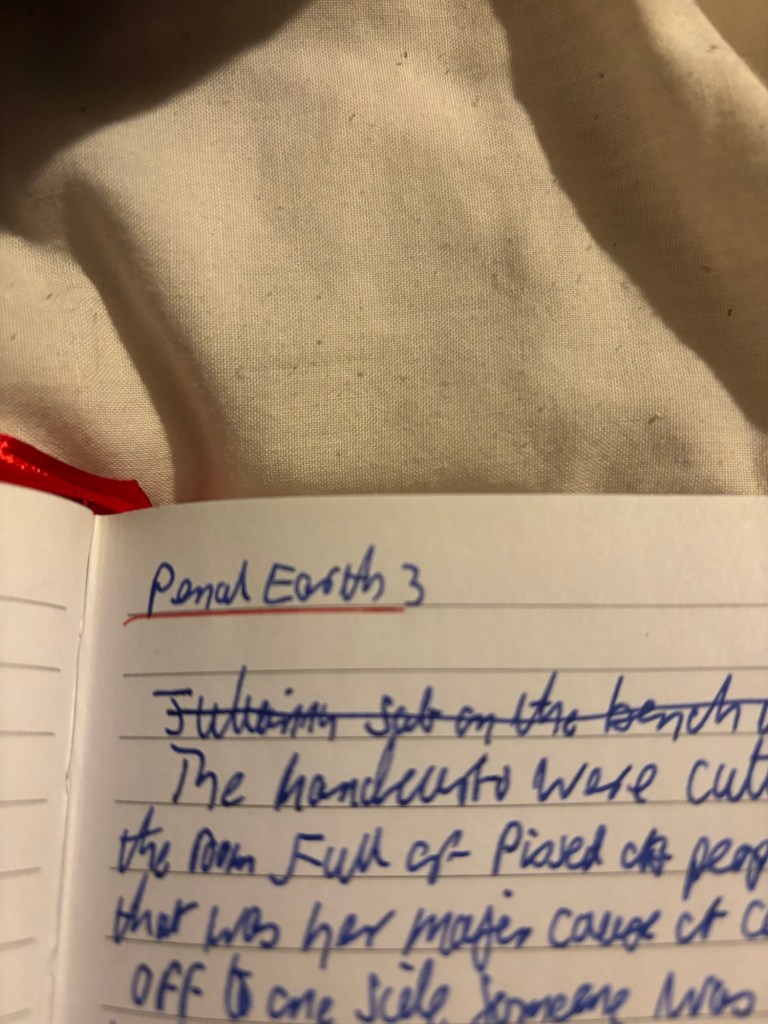 Penal Earth 3
sat on the bench
The handcuffs were
the room Full of Pissed off
that was her major cause of
OFF to one side someone was